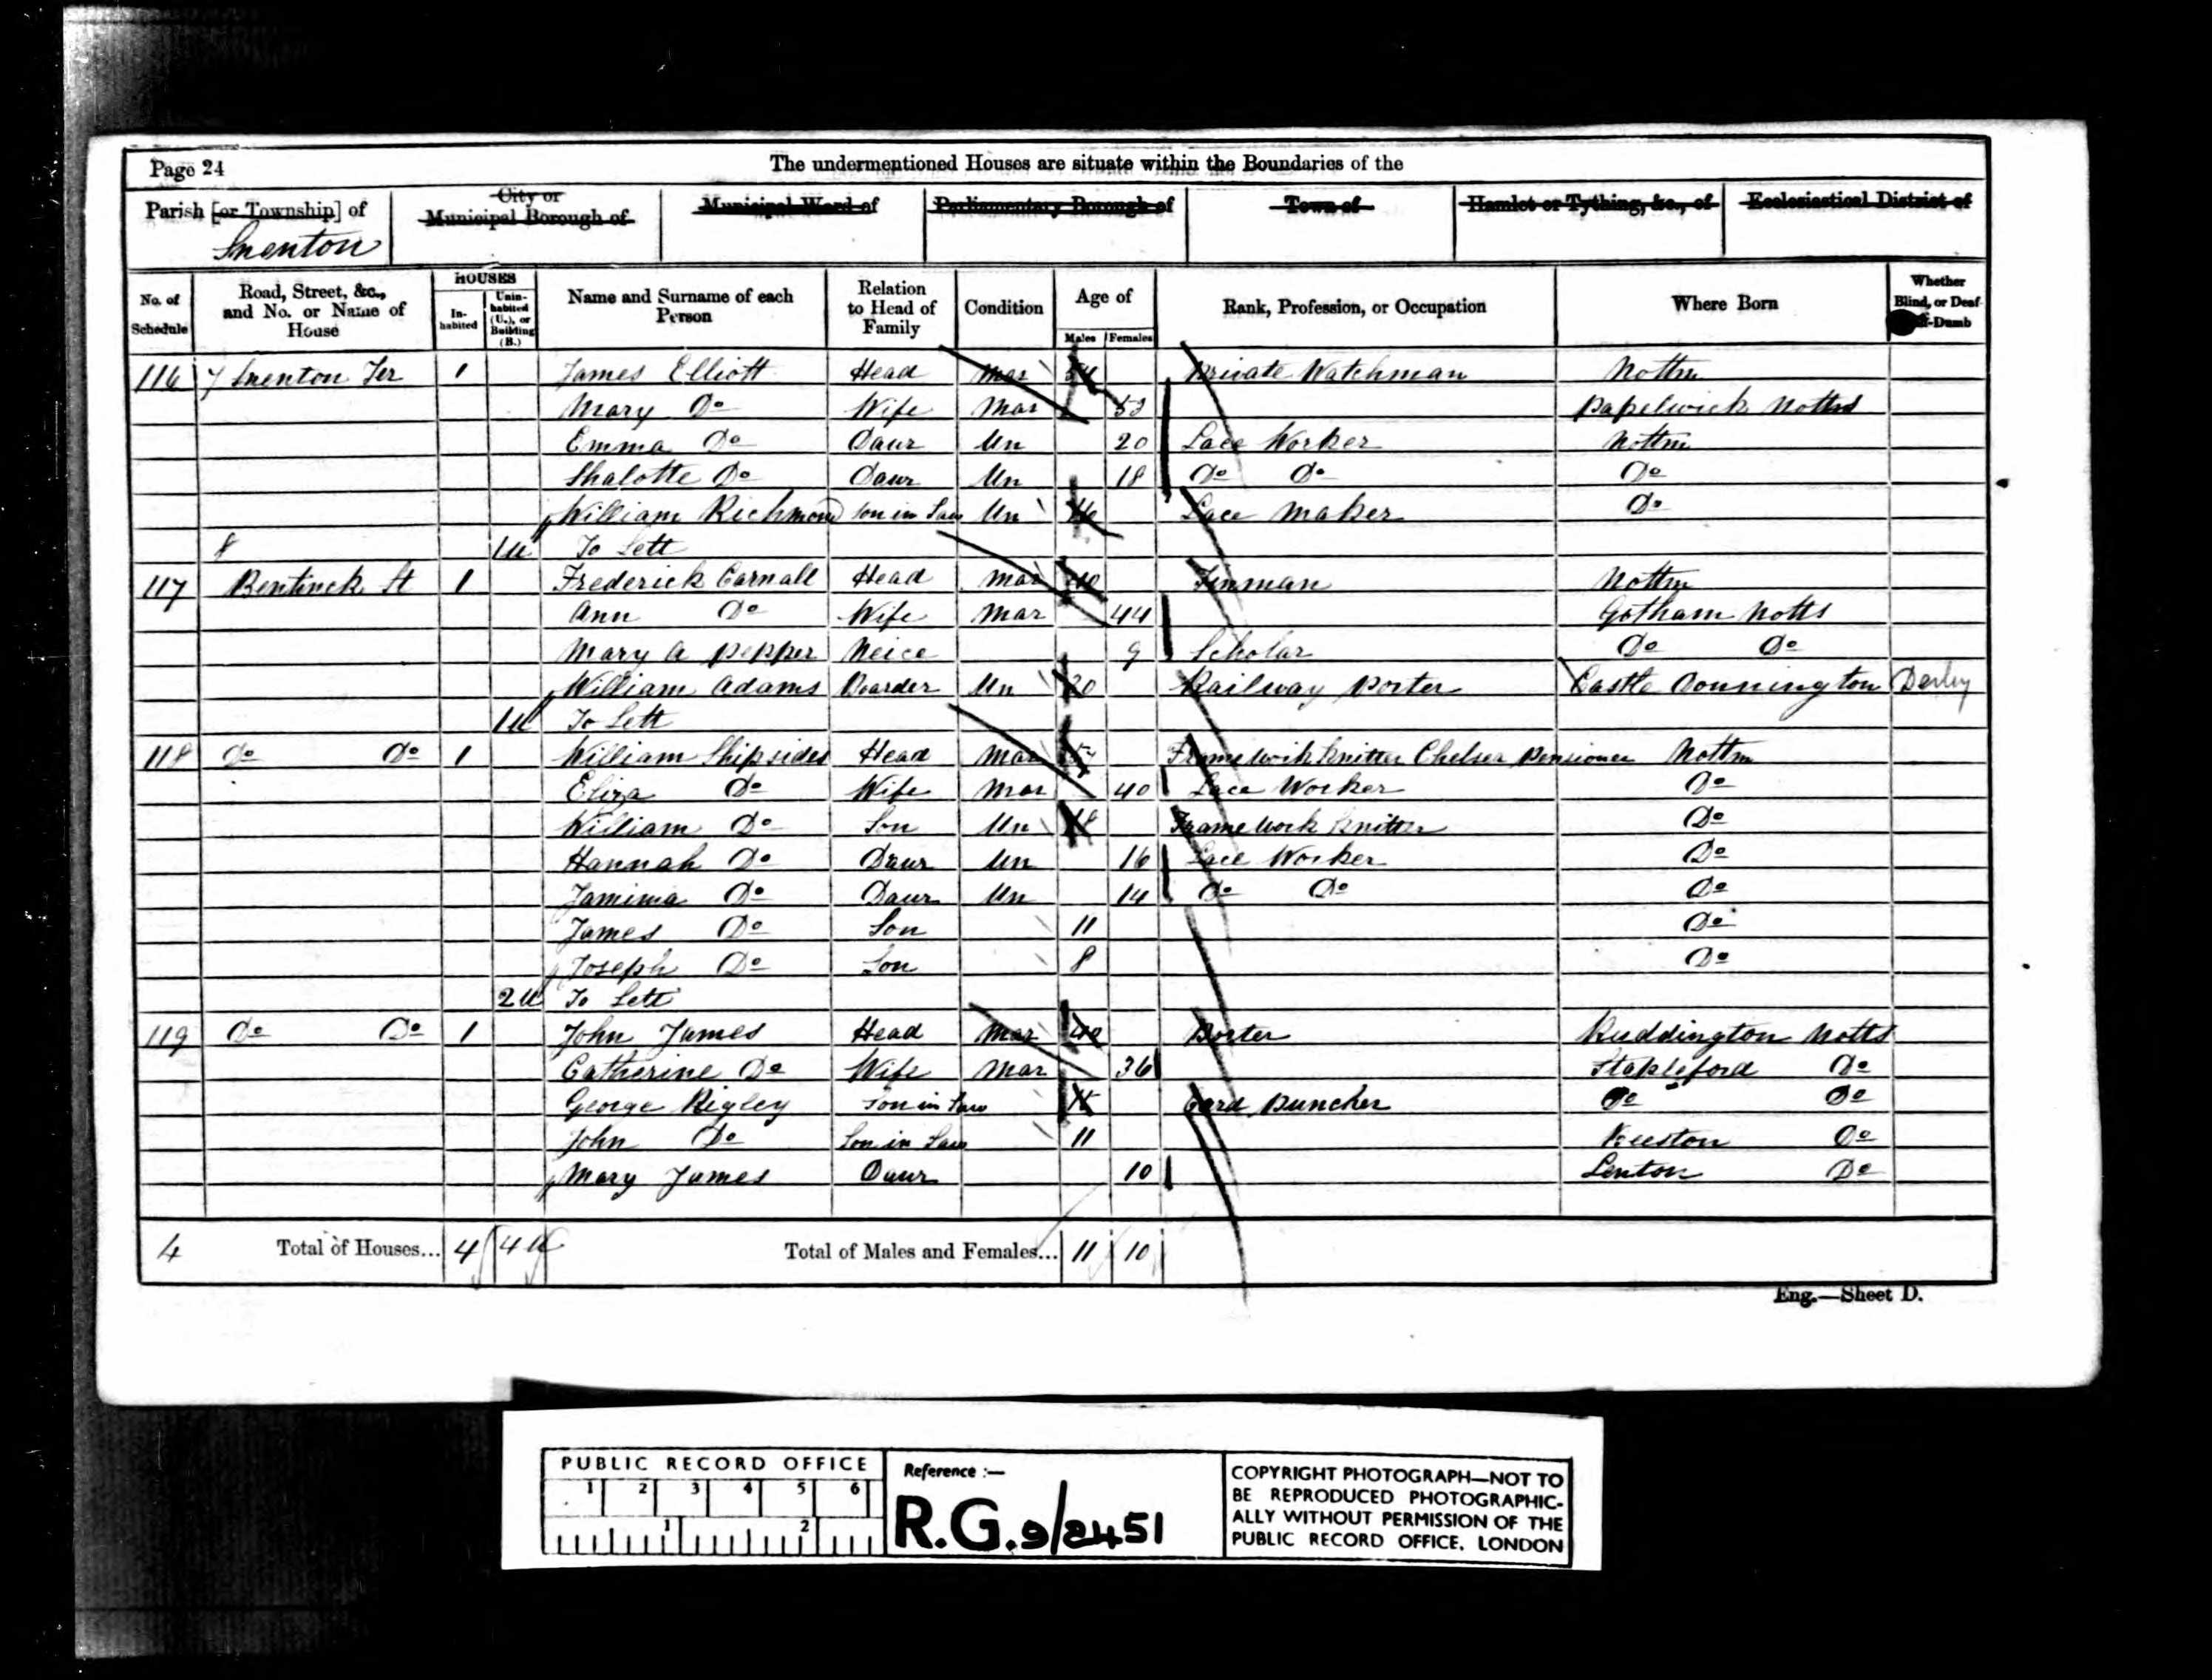 Page 24 The undermentioned Houses are situate within the Boundaries of the
Parish [or Township] of City or Municipal Borough of Municipal Ward of Parliamentary Borough of Town of Hamlet or Tything, &c., of Ecclesiastical District of
Snenton
No. of Schedule Road, Street, &c., and No. or Name of House HOUSES Inhabited Uninhabited (U.), or Building (B.) Name and Surname of each Person Relation to Head of Family Condition Age of Males Females Rank, Profession, or Occupation Where Born Whether Blind, or Deaf-Dumb
116 7 Snenton Ter 1 James Elliott Head Mar Private Watchman Nottm
Mary Do Wife Mar 52 Papelwick Notts
Emma Do Daur Un 20 Lace Worker Nottm
Shalotte Do Daur Un 18 Do Do Do
William Richmond Son in Law Un 16 Lace Maker Do
8 1U To Lett
117 Bentinck St 1 Frederick Carnall Head Mar 40 Nottm
Ann Do Wife Mar 44 Gotham Notts
Mary A Pepper Neice 9 Scholar Do Do
William Adams Boarder Un 20 Railway Porter Castle Donnington Derby
1U To Lett
118 Do Do 1 William Shipsides Head Mar Framework Knitter Chelsea Pensioner Nottm
Eliza Do Wife Mar 40 Lace Worker Do
William Do Son Un 18 Framework Knitter Do
Hannah Do Daur Un 16 Lace Worker Do
Jamima Do Daur Un 14 Do Do Do
James Do Son 11 Do
Joseph Do Son 8 Do
2U To Lett
119 Do Do 1 John James Head Mar 40 Porter Ruddington Notts
Catherine Do Wife Mar 36 Stapleford Do
George Rigley Son in Law 15 Card Puncher Do Do
John Do Son in Law 11 Beeston Do
Mary James Daur 10 Lenton Do
4 Total of Houses... 4 4U Total of Males and Females... 11 10
Eng.—Sheet D.
PUBLIC RECORD OFFICE
1 2 3 4 5 6
1 2
Reference :—
R.G. 9/2451
COPYRIGHT PHOTOGRAPH—NOT TO
BE REPRODUCED PHOTOGRAPHIC-
ALLY WITHOUT PERMISSION OF THE
PUBLIC RECORD OFFICE, LONDON